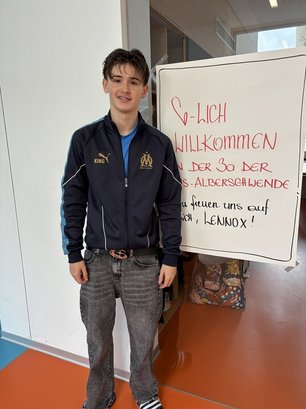 ♡-LICH
WILLKOMMEN
IN DER 3a DER
S-ALBERSCHWENDE
freuen uns auf
LENNOX!
KING